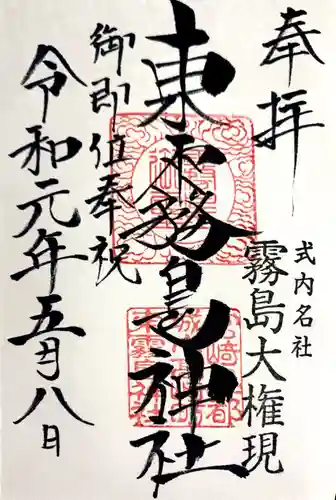 奉拝
式内名社
霧島大権現
東霧島神社
御即位奉祝
令和元年五月八日